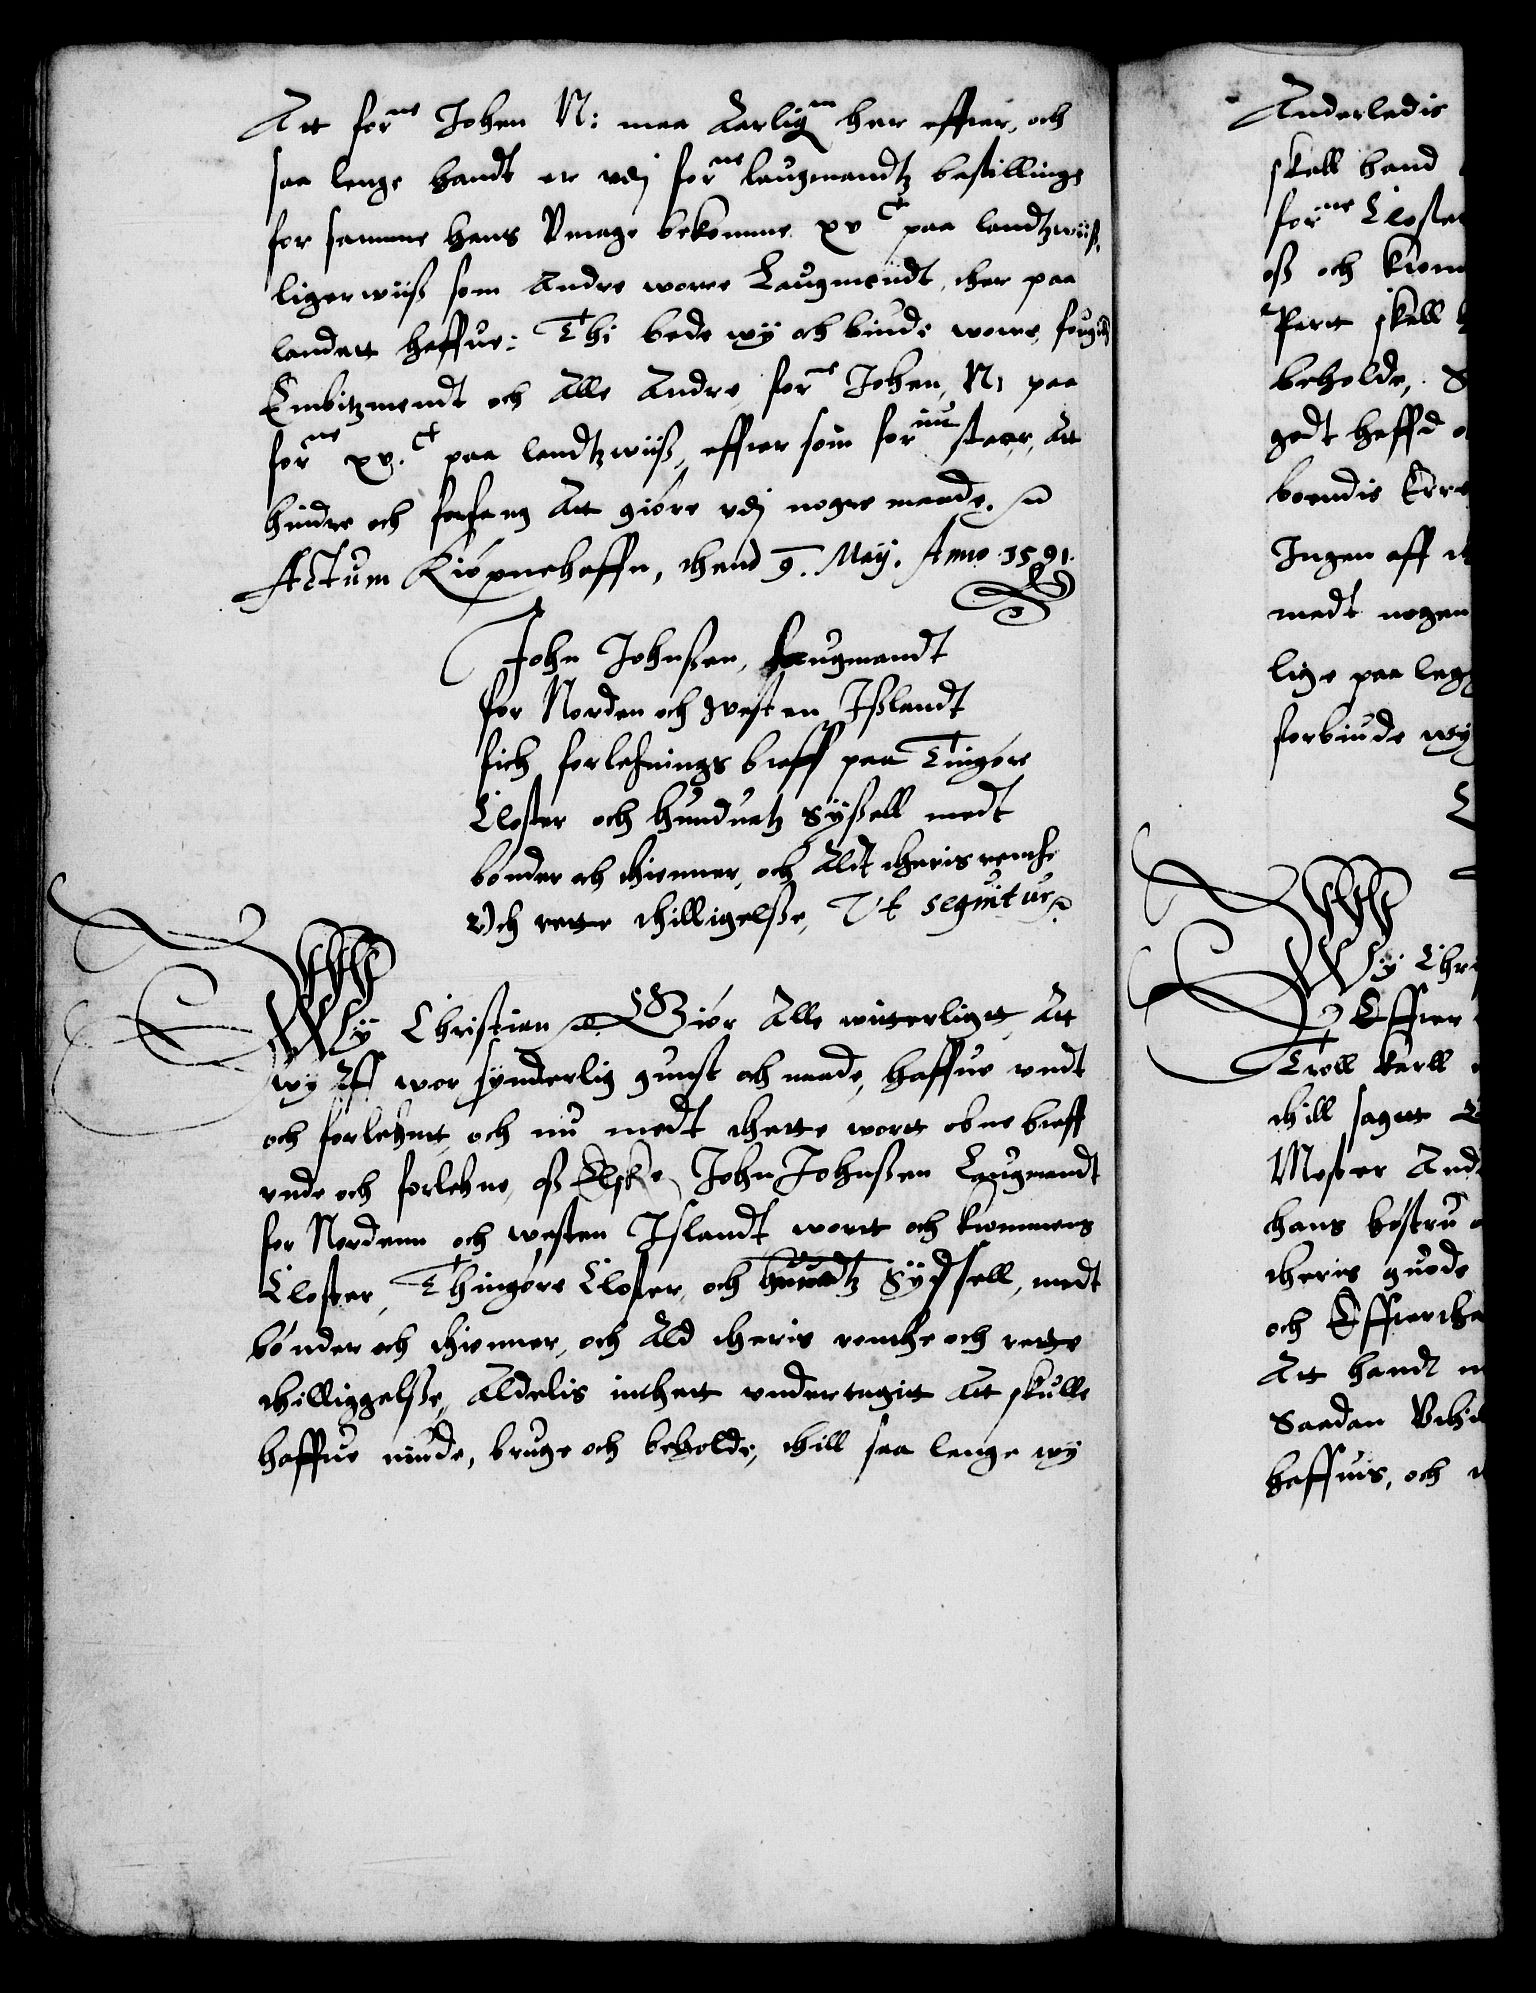 Att forne Johen N: maa Aarligen her effter, och
saa lenge handt er vdj forne laugmandtz bestillinge
for samme hans Vmage bekomme xv Ct paa landtzwiiß,
ligerwiiß som Andre wore Laugmendt, ther paa
landett haffue: Thi bede wy och biude wore, fougth
Embitzmendt och Alle Andre, forne Johen, N: paa
forne xv. Ct paa landtzwiiß, effter som forneuit staar, Att
hindre och forfang Att giöre vdj nogre maade.
Actum Kiöpnehaffn, thend 9. Maij. Anno 1591.
John Johnßen, Laugmandt
for Norden och Westen Ißlandt
fich forlehnings breff paa Tingöre
Closter och Hunduatz Sÿßell medt
bönder och thienner, och Aldt theris renthe
Och rette thilligelße, Vt seqüitur
Wy Christian Giör Alle witterligt Att
wy Aff wor synderlig gunst och naade, haffue vndt
och forlehnt, och nu medt thette wort obne breff
vnde och forlehne, oß Elske, John Johnßen Laugmandt
for Nordenn och westen Islandt, wort och kronnens
Closter, Thingöre Closter, och huuatz Sÿdsell, medt
bönder och thienner, och Ald theris renthe och rette
thilliggelße, Aldelis inthett vndertagitt Att skulle
haffue niude, bruge och beholde, thill saa lenge wy
Anderledis
skall hand
forne Closter
oß och kron
Part skall
beholde,
godt heffd
boendis
Ingen aff
medt nogen
lige paa legg
forbiude wy
Wÿ Chr
Effter
Troll karll
thill sagtt
Mester And
hans hostru
theris guode
och Effterthe
Att handt
Saadan
haffuis, och